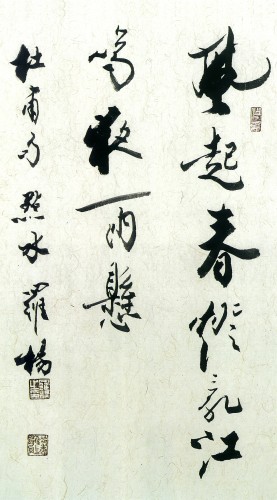 風起春燈亂江
鳴夜雨懸
杜甫句 水 羅楊